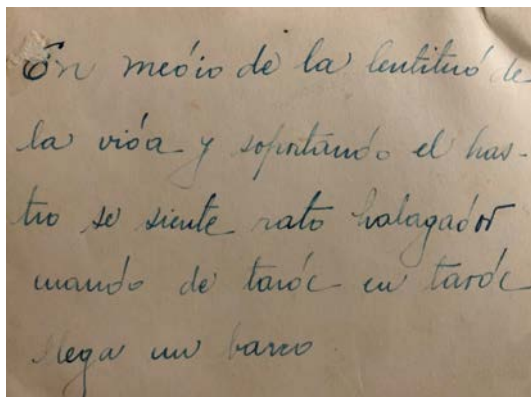 En medio de la lentitud de
la vida y soportando el has-
tío se siente rato halagador
cuando de tarde en tarde
llega un barco.